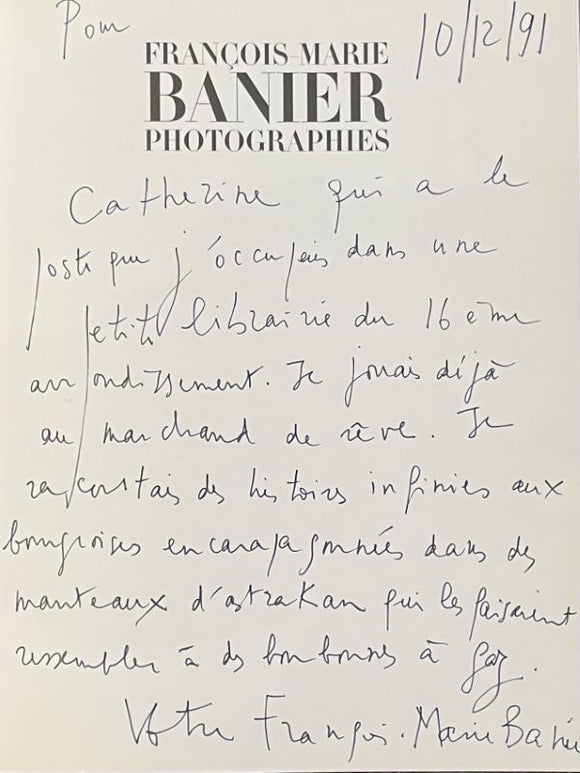 Pour
10/12/91
FRANÇOIS-MARIE
BANIER
PHOTOGRAPHIES
Catherine qui a le
poste que j'occupais dans une
petite librairie du 16 ème
arrondissement. Je jouais déjà
au marchand de rêve. Je
racontais des histoires infinies aux
bourgeoises encaparaçonnées dans des
manteaux d'astrakan qui les faisaient
ressembler à des bonbonnes à gaz.
Votre François-Marie Banier